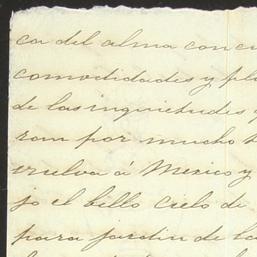 ca del alma con cu
comodidades y pla
de las inquietudes y
ron por mucho t
vuelva á Mexico y
jo el bello cielo de
para jardin de la